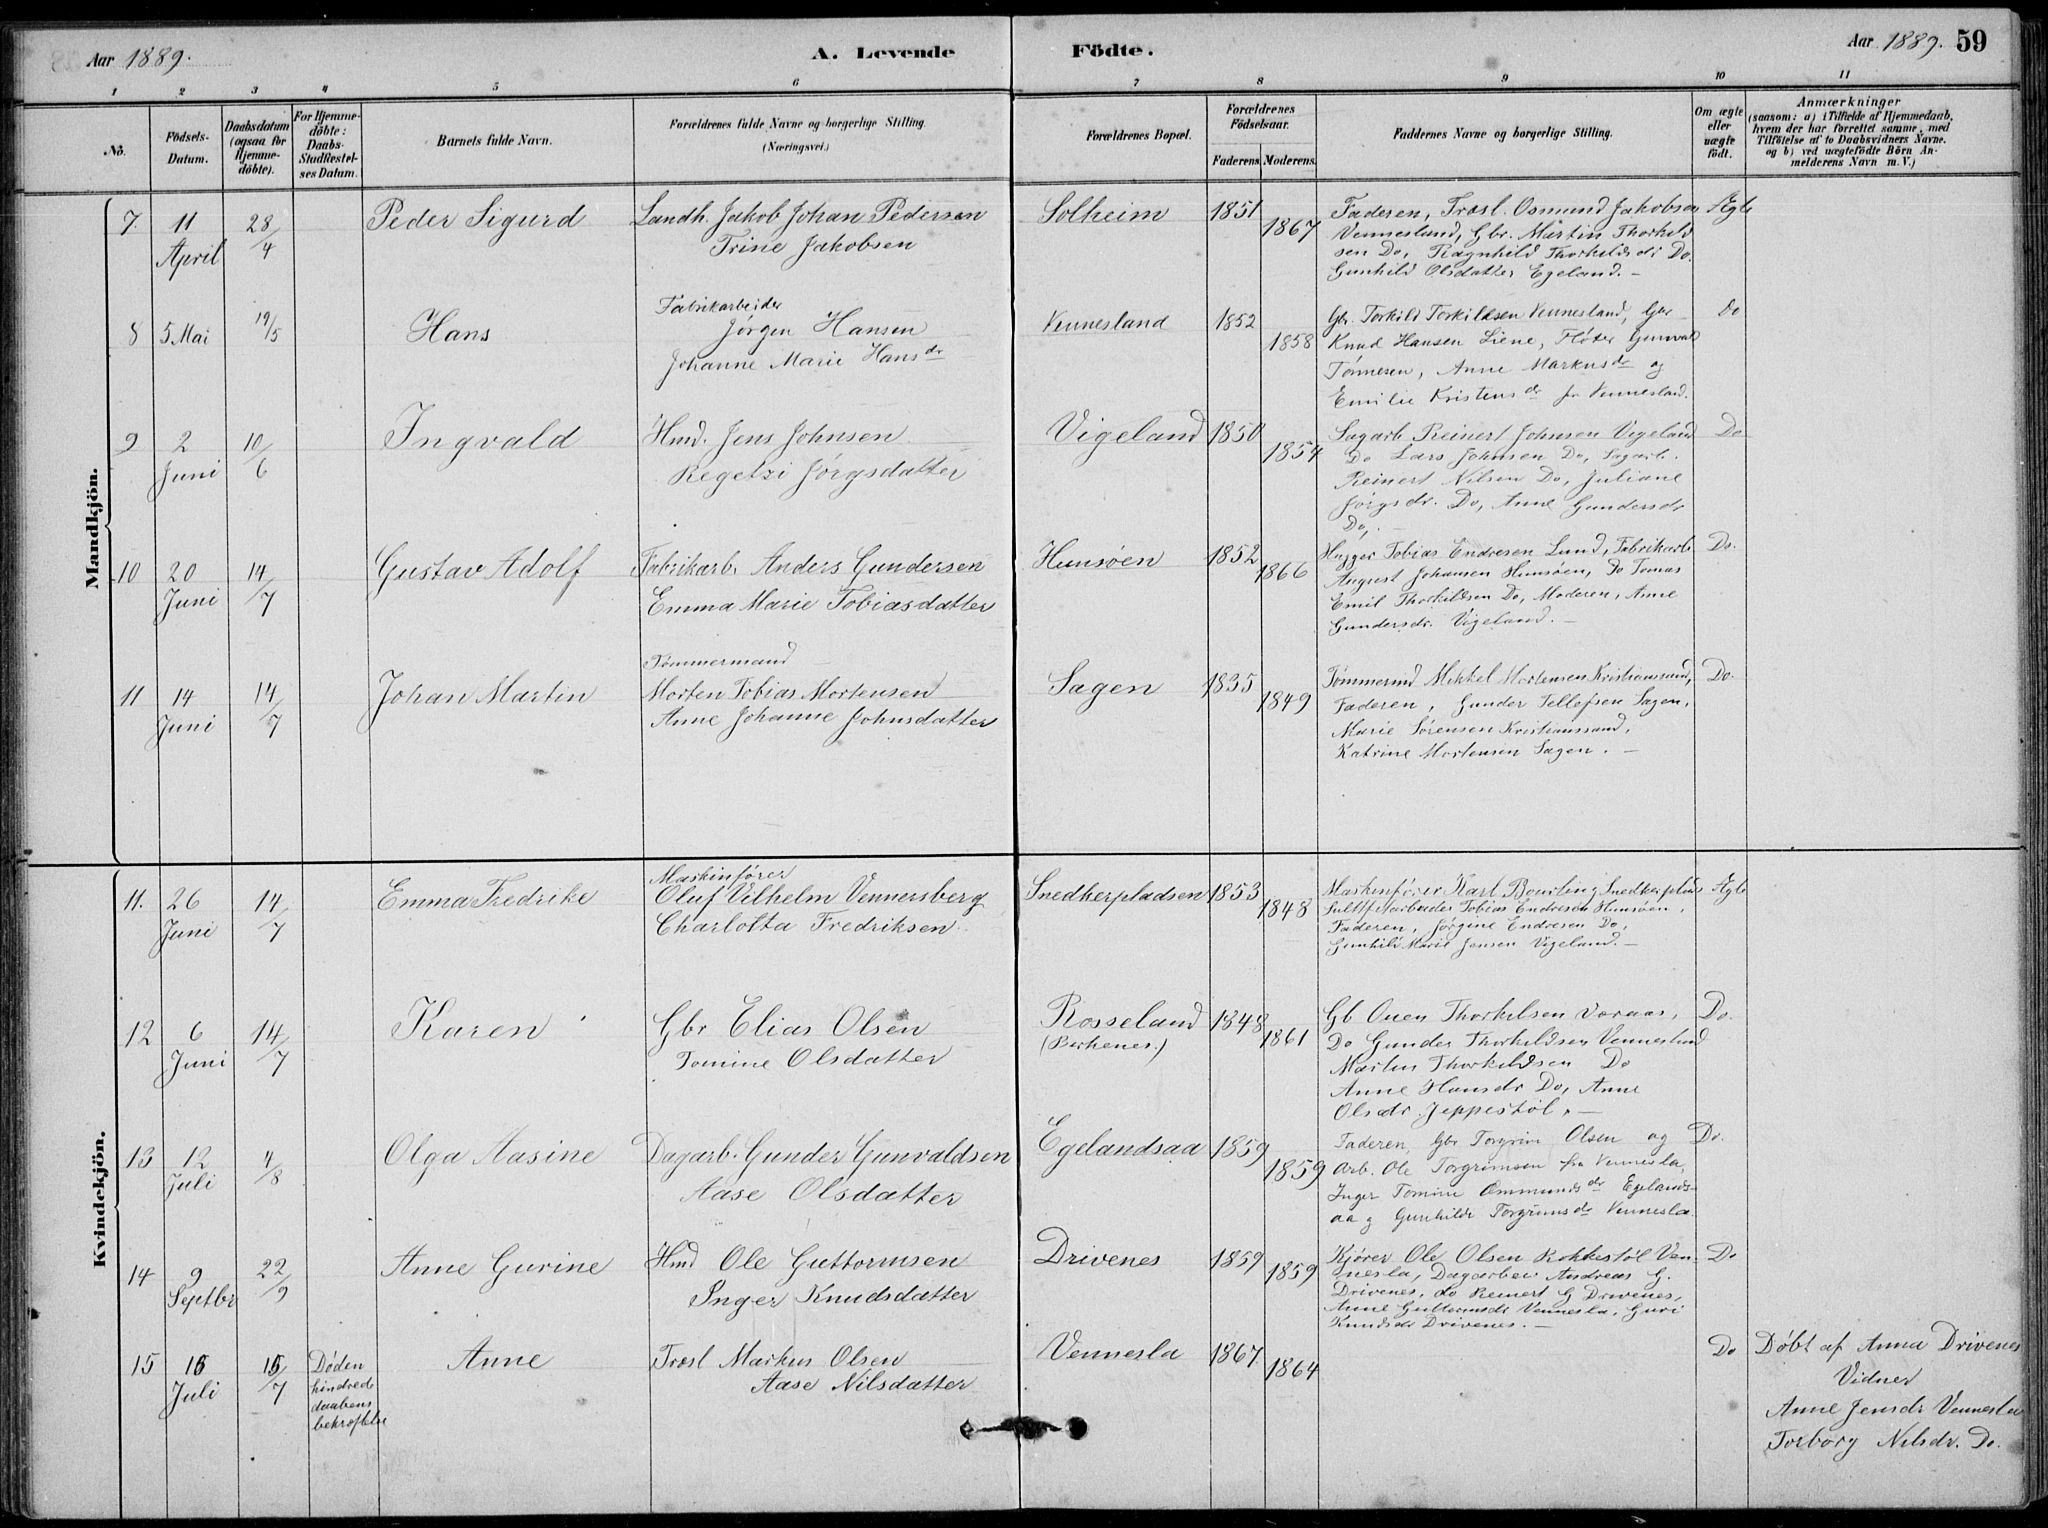 Aar 1889. A. Levende Födte. Aar 1889. 59
1 2 3 4 5 6 7 8 9 10 11
No. Födsels-Datum. Daabsdatum (ogsaa for Hjemmedöbte). For Hjemmedöbte: Daabs-Stadfæstelses Datum. Barnets fulde Navn. Forældrenes fulde Navne og borgerlige Stilling. (Næringsvei.) Forældrenes Bopæl. Forældrenes Födselsaar. Faderens. Moderens. Faddernes Navne og borgerlige Stilling. Om ægte eller uægte födt. Anmærkninger (saasom: a) i Tilfælde af Hjemmedaab, hvem der har forrettet samme, med Tilföielse af to Daabsvidners Navne. og b) ved uægtefödte Börn Anmelderens Navn m. V.)
Mandkjön.
7. 11 April 28/4 Peder Sigurd Landh. Jakob Johan Pedersen Solheim 1851 Faderen, Træsl. Osmund Jakobsen Ægte
Trine Jakobsen 1867 Vennesland, Gbr. Martin Thorkild
sen Do, Ragnhild Thorkildsdr Do.
Gunhild Olsdatter Egeland. –
8 5 Mai 19/5 Hans Fabrikarbeider
Jørgen Hansen Vennesland 1852 Gbr. Torkild Torkildsen Vennesland, Gbr Do
Johanne Marie Hansdr 1858 Knud Hansen Liene, Fløter Gunvald
Tønnesen, Anne Markusdr og
Emilie Kristensdr fr Vennesland.
9 2 Juni 10/6 Ingvald Hmd. Jens Johnsen Vigeland 1850 Sagarb. Reinert Johnsen Vigeland Do
Regetzi Jørgsdatter 1854 Do Lars Johnsen Do, Sagarb.
Reinert Nilsen Do, Juliane
Jørgsdr. Do, Anne Gundersdr
Do. –
10 20 Juni 14/7 Gustav Adolf Fabrikarb. Anders Gundersen Hunsøen 1852 Hugger Tobias Endresen Lund, Fabrikarb. Do.
Emma Marie Tobiasdatter 1866 August Johansen Hunsøen, Do Tomas
Emil Thorkildsen Do, Moderen, Anne
Gundersdr. Vigeland. –
11 14 Juni 14/7 Johan Martin Tømmermand
Morten Tobias Mortensen Sagen 1835 Tømmermd Mikkel Mortensen Kristianssand, Do.
Anne Johanne Johnsdatter 1849 Faderen, Gunder Tellefsen Sagen,
Marie Sørensen Kristianssand,
Katrine Mortensen Sagen. –
Kvindekjön.
11. 26 Juni 14/7 Emma Fredrike Maskinfører
Oluf Vilhelm Vennersberg Snedkerpladsen 1853 Maskinfører Karl Bourling Snedkerplds Ægte
Charlotta Fredriksen 1848 Tobias Endresen Hunsøen,
Faderen, Jørgine Endresen Do,
Gunhild Marie Jensen Vigeland. –
12 6 Juni 14/7 Karen Gbr Elias Olsen Rosseland 1848 Gb Ouen Thorkelsen Voraas, Do.
Tomine Olsdatter (Birkenes.) 1861 Do Gunder Thorkildsen Vennesland
Martin Thorkildsen Do
Anne Hansdr Do, Anne
Olsdr. Jeppestøl. –
13 12 Juli 4/8 Olga Aasine Dagarb. Gunder Gunvaldsen Egelandsaa 1859 Faderen, Gbr Torgrim Olsen og Do.
Aase Olsdatter 1859 Arb. Ole Torgrimsen fra Vennesla,
Inger Tomine Ommundsdr Egelands-
aa g Gunhilde Torgrimsdr Vennesla.
14 9 Septbr 22/9 Anne Gurine Hmd Ole Guttormsen Drivenes 1859 Kjører Ole Olsen Rokkestøl Ven- Do
Inger Knudsdatter 1859 nesla, Dagarber Andreas G.
Drivenes, do Reinert G Drivenes,
Anne Guttormsdr Vennesla, Guri
Knudsdr Drivenes. –
15 15 Juli 15/7 Døden hindrede daabens bekræftelse Anne Træsl Markus Olsen Vennesla 1867 Do Døbt af Anna Drivenes
Aase Nilsdatter 1864 Vidner
Anne Jensdr Vennesla
Torborg Nilsdr. Do.